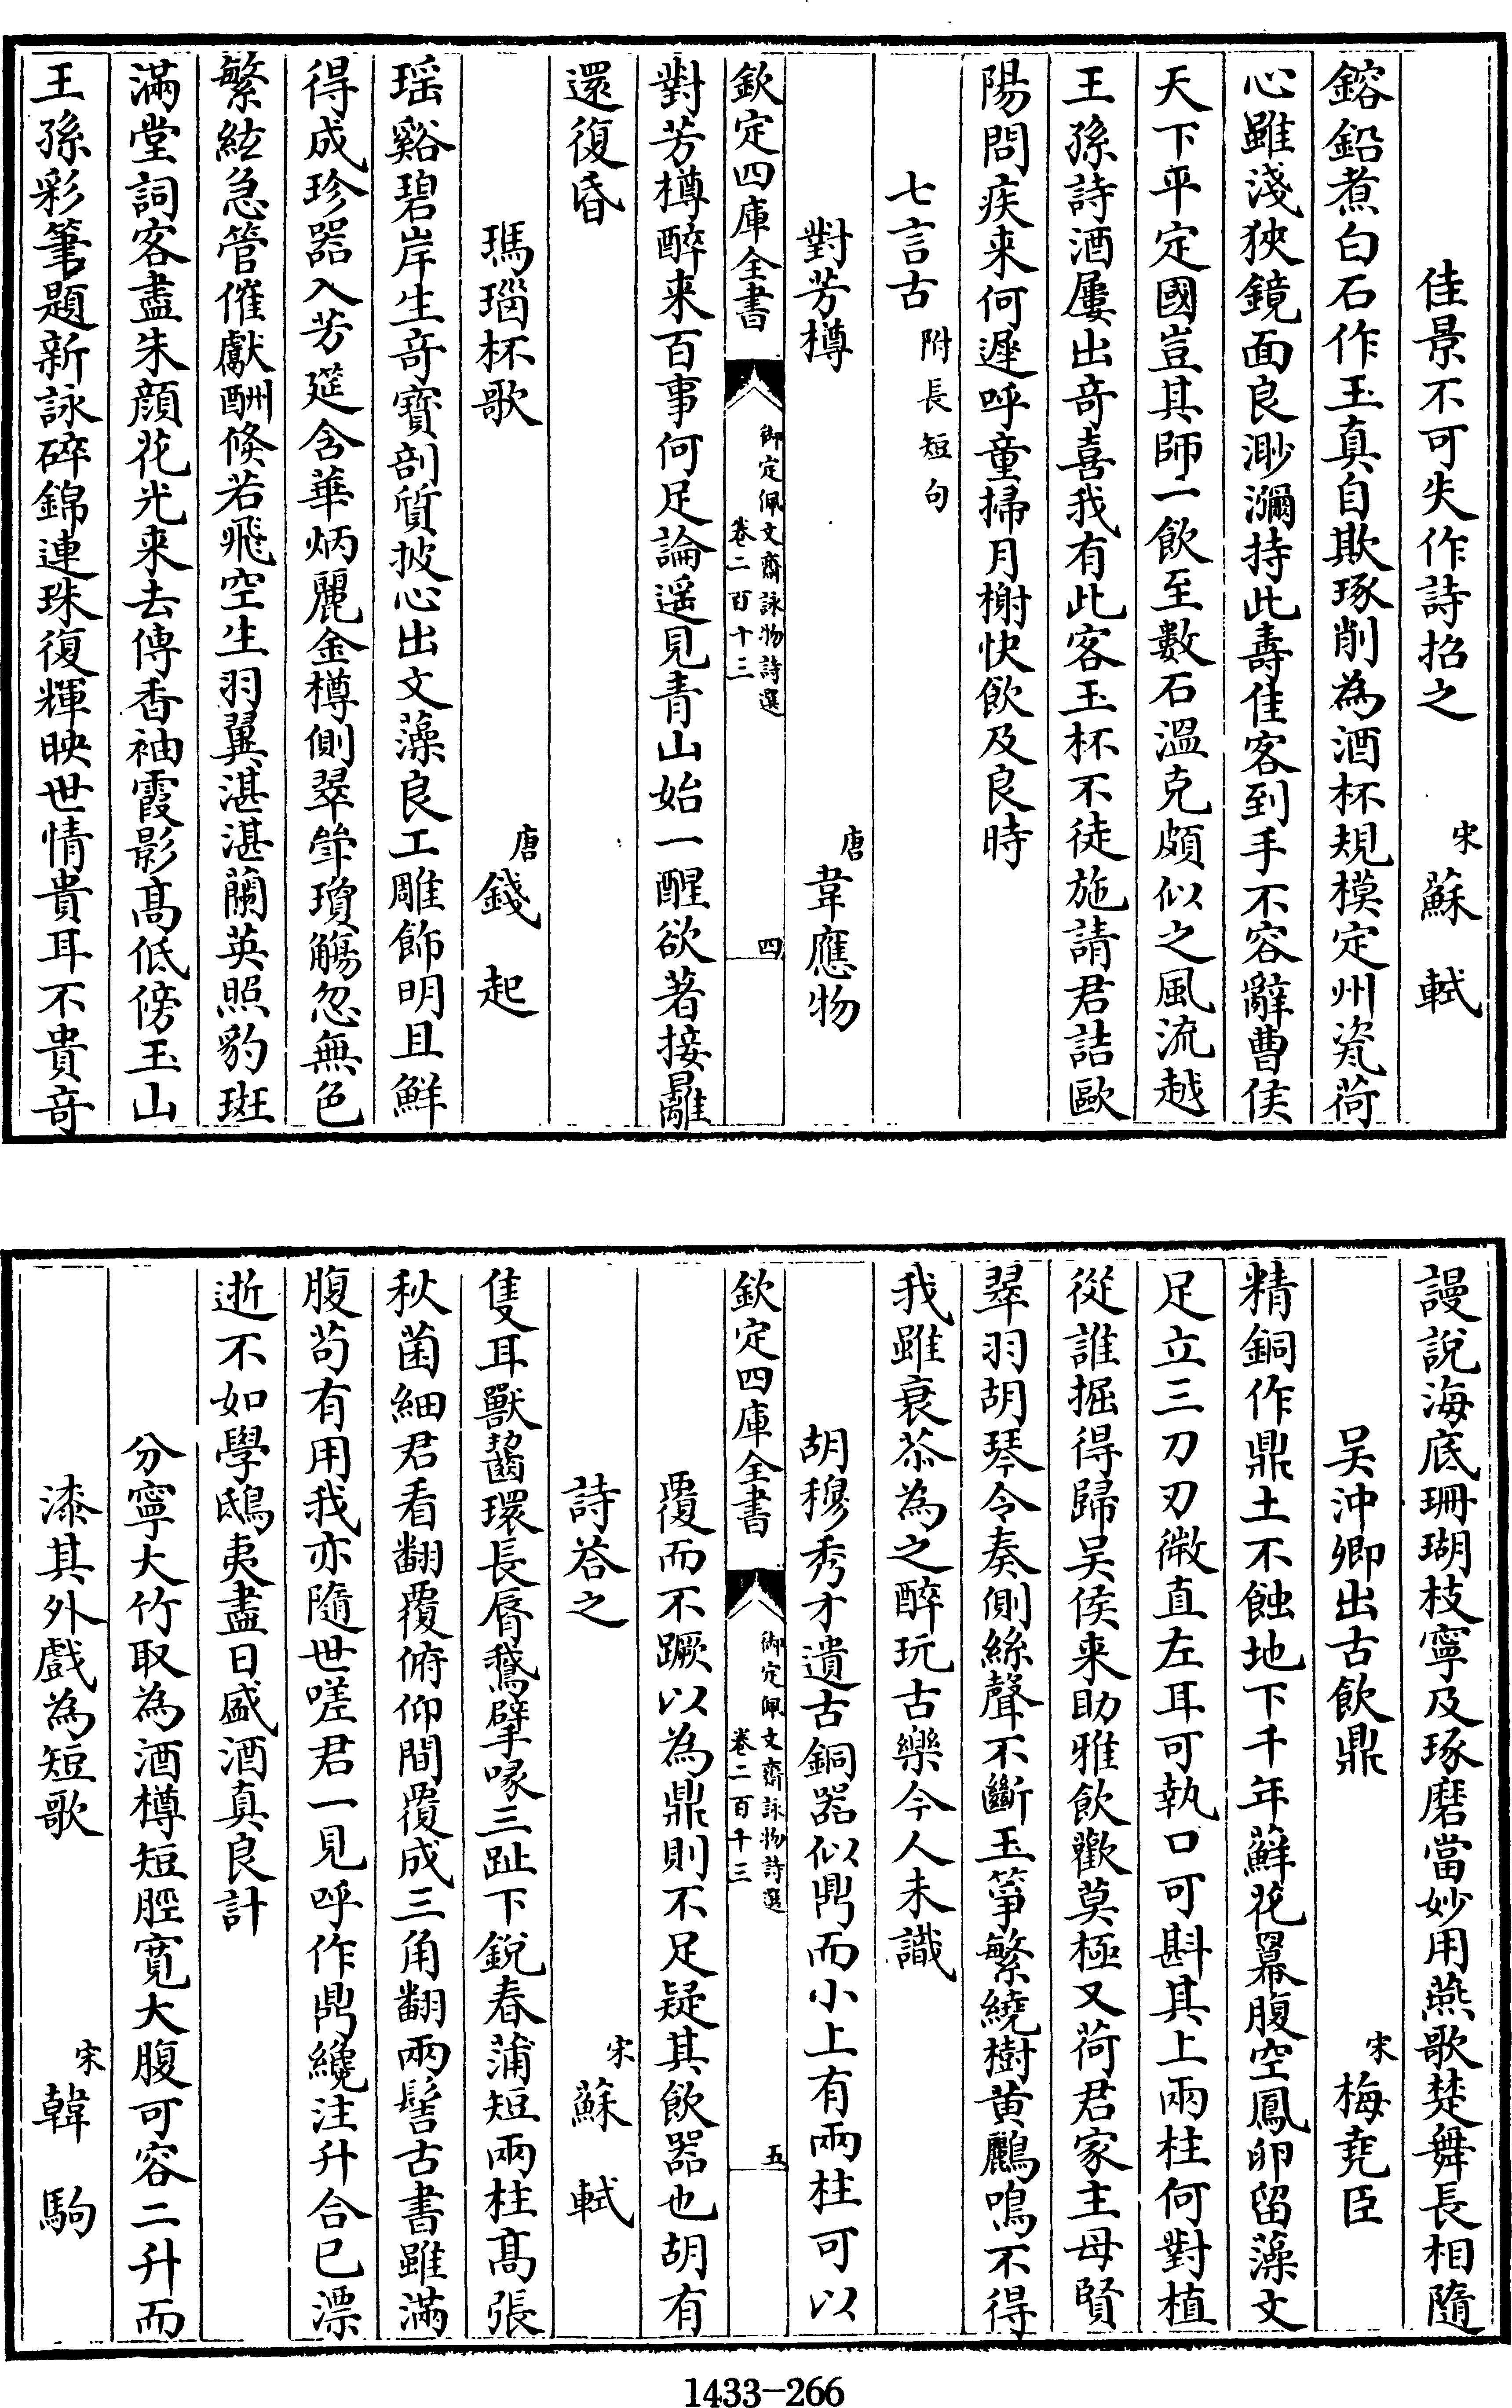 佳景不可失作詩招之　宋蘇軾
鎔鉛煮白石作玉真自欺琢削為酒杯規模定州瓷荷
心雖淺狹鏡面良渺瀰持此壽佳客到手不容辭曹侯
天下平定國豈其師一飲至數石溫克頗似之風流越
王孫詩酒屢出奇喜我有此客玉杯不徒施請君詰歐
陽問疾来何遲呼童掃月榭快飲及良時
七言古附長短句
對芳樽　唐韋應物
欽定四庫全書　御定佩文齋詠物詩選　卷二百十三　四
對芳樽醉来百事何足論遥見青山始一醒欲著接䍦
還復昏
瑪瑙杯歌　唐錢起
瑶谿碧岸生竒寶剖質披心出文藻良工雕飾明且鮮
得成珍器入芳筵含華炳麗金樽側翠斝瓊觴忽無色
繁絃急管催獻酬倏若飛空生羽翼湛湛蘭英照豹斑
滿堂詞客盡朱顔花光来去傳香袖霞影髙低傍玉山
王孫彩筆題新詠碎錦連珠復輝映世情貴耳不貴竒
謾說海底珊瑚枝寧及琢磨當妙用燕歌楚舞長相隨
吴沖卿出古飲鼎　宋梅堯臣
精銅作鼎土不蝕地下千年蘚花羃腹空鳳卵留藻文
足立三刀刃微直左耳可執口可斟其上兩柱何對植
從誰掘得歸吴侯来助雅飲歡莫極又荷君家主母賢
翠羽胡琴令奏側絲聲不斷玉箏繁繞樹黄鸝鳴不得
我雖衰苶為之醉玩古樂今人未識
胡穆秀才遺古銅器似鼎而小上有兩柱可以
欽定四庫全書　御定佩文齋詠物詩選　卷二百十三　五
覆而不蹶以為鼎則不足疑其飲器也胡有
詩荅之　宋蘇軾
隻耳獸齧環長脣鵞擘喙三趾下銳春蒲短兩柱髙張
秋菌細君看翻覆俯仰間覆成三角翻兩髻古書雖滿
腹苟有用我亦隨世嗟君一見呼作鼎纔注升合已漂
逝不如學鴟夷盡日盛酒真良計
分寧大竹取為酒樽短脛寛大腹可容二升而
漆其外戲為短歌　宋韓駒
1433-266